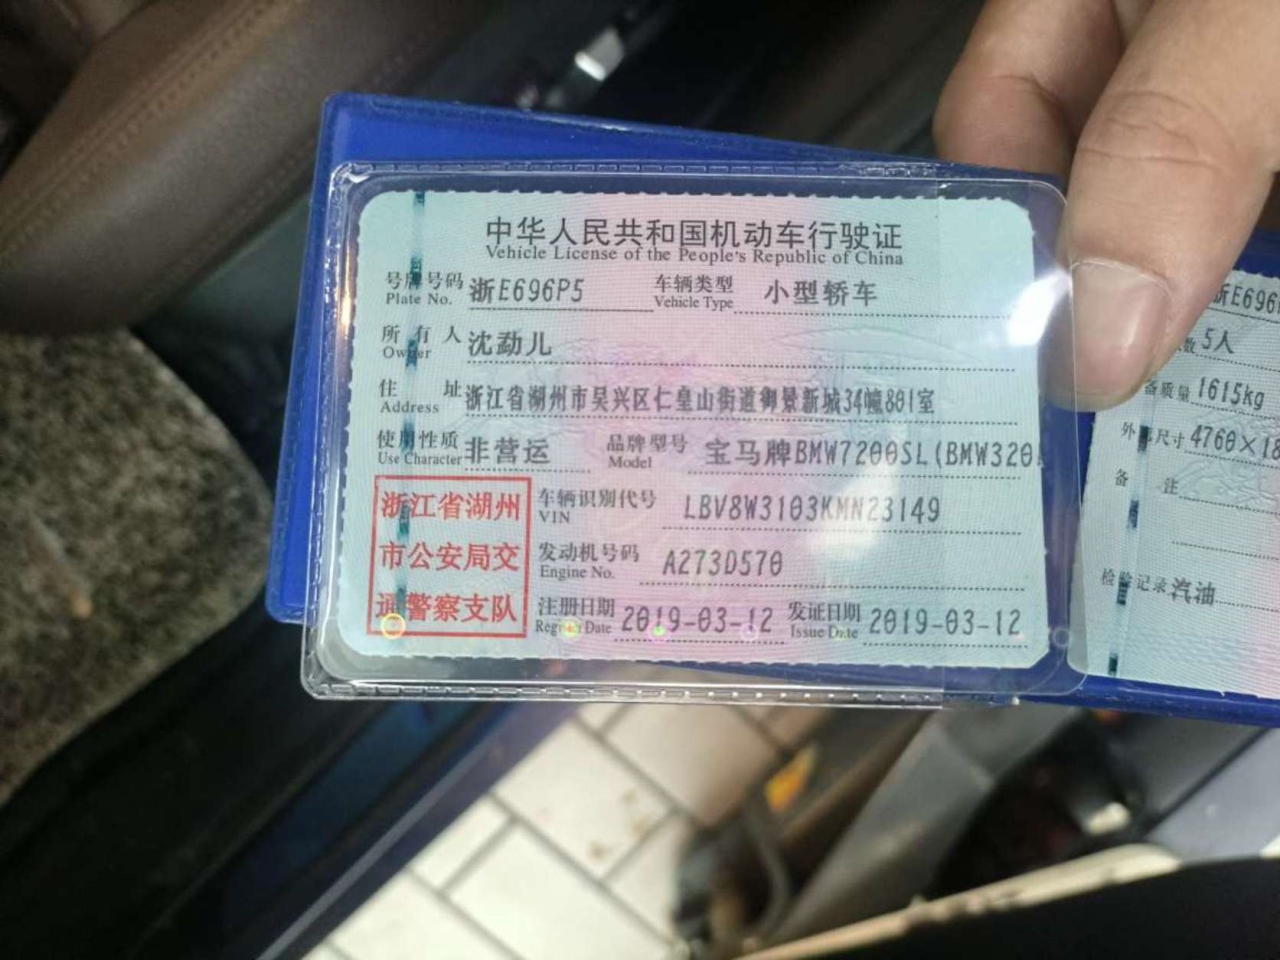 中华人民共和国机动车行驶证
Vehicle License of the People's Republic of China
号牌号码 浙E696P5 车辆类型 小型轿车
Plate No. Vehicle Type
所有人 沈勐儿
Owner
住址 浙江省湖州市吴兴区仁皇山街道御景新城34幢801室
Address
使用性质 非营运 品牌型号 宝马牌BMW7200SL(BMW320
Use Character Model
浙江省湖州
市公安局交
通警察支队
车辆识别代号 LBV8W3103KMN23149
VIN
发动机号码 A273D570
Engine No.
注册日期 2019-03-12 发证日期 2019-03-12
Register Date Issue Date
浙E696
数 5人
备质量 1615kg
外廓尺寸 4760×18
备注
检验记录 汽油